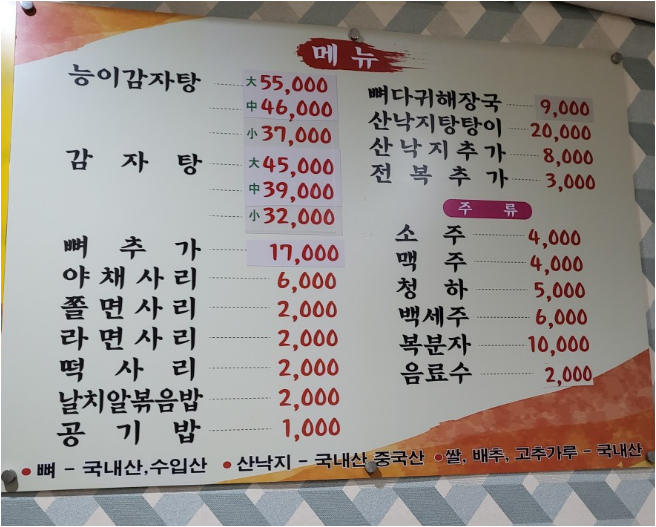 메뉴
능이감자탕 大 55,000
中 46,000
小 37,000
감자탕 大 45,000
中 39,000
小 32,000
뼈추가 17,000
야채사리 6,000
쫄면사리 2,000
라면사리 2,000
떡사리 2,000
날치알볶음밥 2,000
공기밥 1,000
뼈다귀해장국 9,000
산낙지탕탕이 20,000
산낙지추가 8,000
전복추가 3,000
주류
소주 4,000
맥주 4,000
청하 5,000
백세주 6,000
복분자 10,000
음료수 2,000
• 뼈 - 국내산,수입산 • 산낙지 - 국내산,중국산 • 쌀, 배추, 고추가루 - 국내산